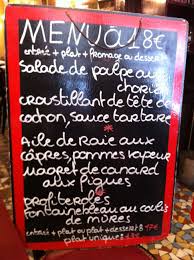 MENU à 18€
entrée + plat + fromage ou dessert
salade de poulpe au
chorizo
croustillant de tête de
cochon, sauce tartare
*
Aile de Raie aux
câpres, pommes vapeur
magret de canard
aux figues
*
profiteroles
fontainebleau au coulis
de mûres
entrée + plat ou plat + dessert
plat unique